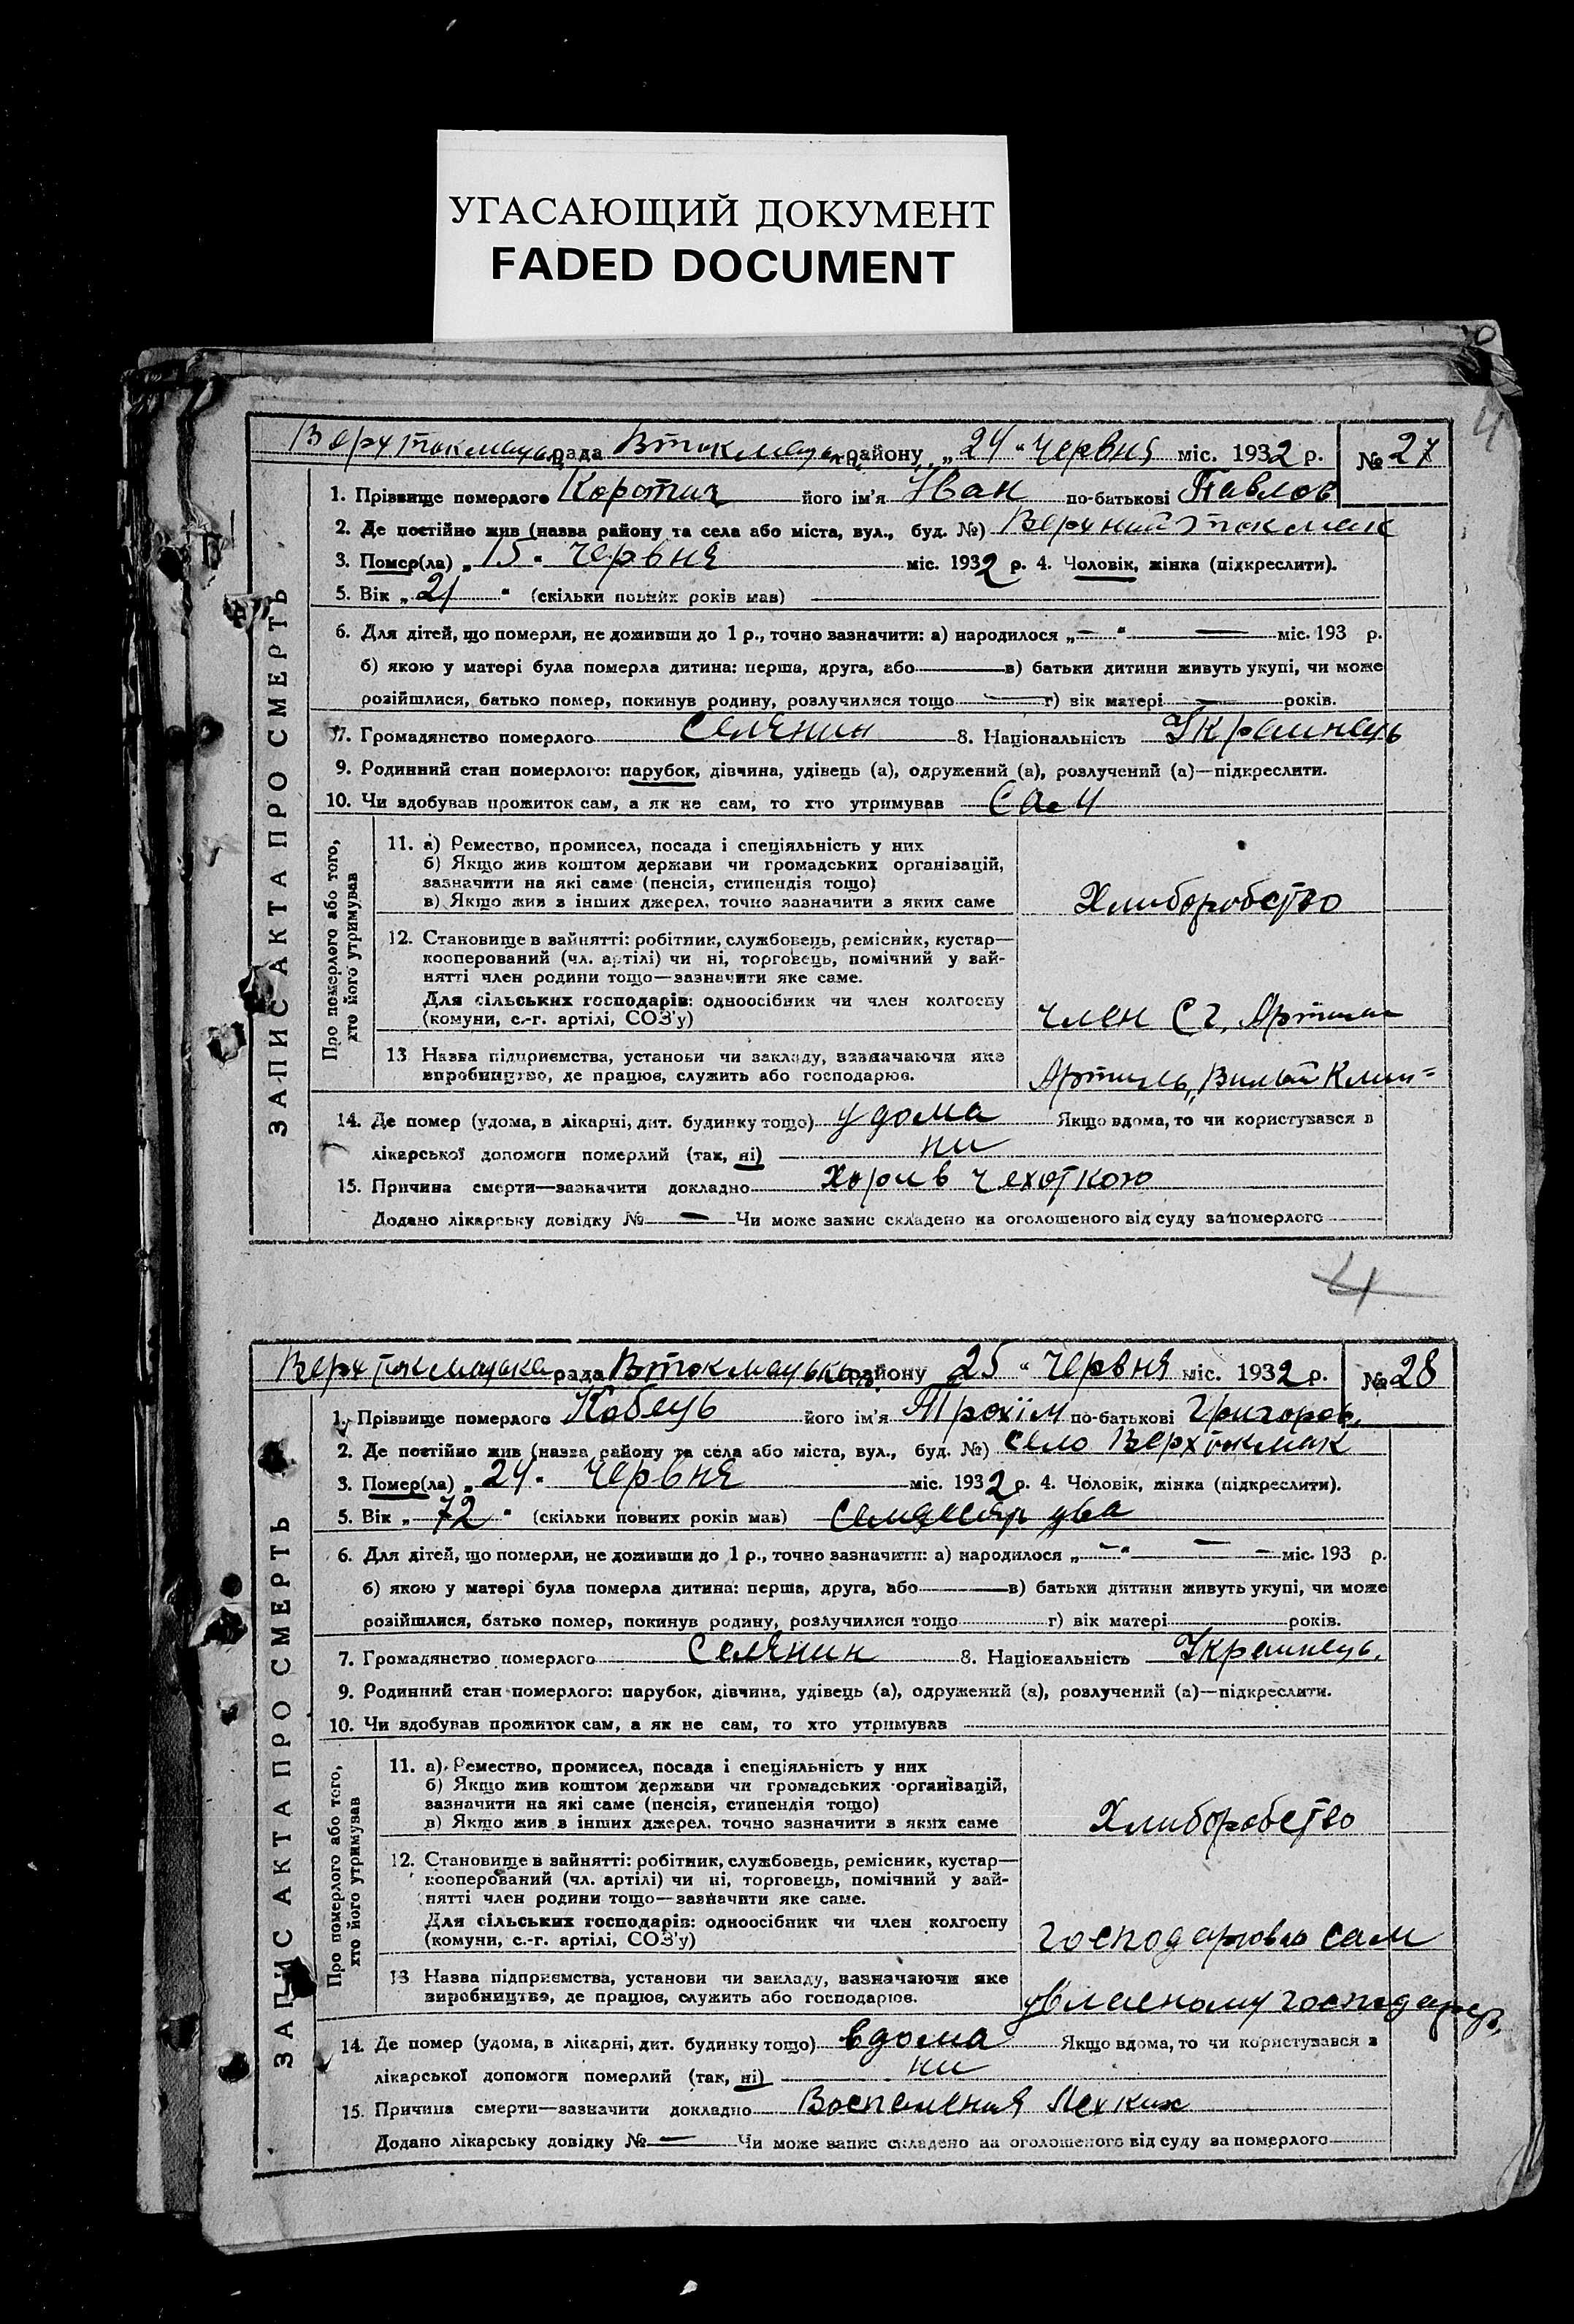 УГАСАЮЩИЙ ДОКУМЕНТ
FADED DOCUMENT
4
ЗАПИС АКТА ПРО СМЕРТЬ
рада Втокмацьк району „24“ червня міс. 1932 р. № 27
1. Прізвище померлого Коротич його ім'я Іван по-батькові Павлов
2. Де постійно жив (назва району та села або міста, вул., буд. №) Верхний токмак
3. Помер(ла) „15“ червня міс. 1932 р. 4. Чоловік, жінка (підкреслити).
5. Вік „21“ (скільки повних років мав)
6. Для дітей, що померли, не доживши до 1 р., точно зазначити: а) народилося „—“ — міс. 193 р.
б) якою у матері була померла дитина: перша, друга, або в) батьки дитини живуть укупі, чи може
розійшлися, батько помер, покинув родину, розлучилися тощо — г) вік матері — років.
7. Громадянство померлого Селянин 8. Національність Украинець
9. Родинний стан померлого: парубок, дівчина, удівець (а), одружений (а), розлучений (а)—підкреслити.
10. Чи здобував прожиток сам, а як не сам, то хто утримував Сам
Про померлого або того,
хто його утримував
11. а) Ремество, промисел, посада і спеціяльність у них
б) Якщо жив коштом держави чи громадських організацій,
зазначити на які саме (пенсія, стипендія тощо)
в) Якщо жив з інших джерел, точно зазначити з яких саме
Хлиборобство
12. Становище в занятті: робітник, службовець, ремісник, кустар—
кооперований (чл. артілі) чи ні, торговець, помічний у зай-
нятті член родини тощо—зазначити яке саме.
Для сільських господарів: одноосібник чи член колгоспу
(комуни, с.-г. артілі, СОЗ'у)
член С г. Артили
13 Назва підприємства, установи чи закладу, зазначаючи яке
виробництво, де працює, служить або господарює.
Артиль,
14. Де помер (удома, в лікарні, дит. будинку тощо) удома Якщо вдома, то чи користувався з
лікарської допомоги померлий (так, ні) ни
15. Причина смерти—зазначити докладно Хорив чехоткою
Додано лікарську довідку № — Чи може запис складено на оголошеного від суду за померлого
4
ЗАПИС АКТА ПРО СМЕРТЬ
Верхтокмацька рада Втокмацького району 25“ червня міс. 1932 р. № 28
1. Прізвище померлого Кобець його ім'я Трохим по-батькові Григоров.
2. Де постійно жив (назва району та села або міста, вул., буд. №) село Верхтокмак
3. Помер(ла) „24“ червня міс. 1932 р. 4. Чоловік, жінка (підкреслити).
5. Вік „72“ (скільки повних років мав) Семдесяр два
6. Для дітей, що померли, не доживши до 1 р., точно зазначити: а) народилося „—“ — — міс. 193 р.
б) якою у матері була померла дитина: перша, друга, або в) батьки дитини живуть укупі, чи може
розійшлися, батько помер, покинув родину, розлучилися тощо г) вік матері років.
7. Громадянство померлого Селянин 8. Національність Украинець.
9. Родинний стан померлого: парубок, дівчина, удівець (а), одружений (а), розлучений (а)—підкреслити.
10. Чи здобував прожиток сам, а як не сам, то хто утримував
Про померлого або того,
хто його утримував
11. а) Ремество, промисел, посада і спеціяльність у них
б) Якщо жив коштом держави чи громадських організацій,
зазначити на які саме (пенсія, стипендія тощо)
в) Якщо жив з інших джерел, точно зазначити з яких саме
Хлиборобство
12. Становище в занятті: робітник, службовець, ремісник, кустар—
кооперований (чл. артілі) чи ні, торговець, помічний у зай-
нятті член родини тощо—зазначити яке саме.
Для сільських господарів: одноосібник чи член колгоспу
(комуни, с.-г. артілі, СОЗ'у)
господарював сам
13 Назва підприємства, установи чи закладу, зазначаючи яке
виробництво, де працює, служить або господарює.
увласному
14. Де помер (удома, в лікарні, дит. будинку тощо) вдома Якщо вдома, то чи користувався з
лікарської допомоги померлий (так, ні) ни
15. Причина смерти—зазначити докладно Воспаления Лехких
Додано лікарську довідку № — Чи може запис складено на оголошеного від суду за померлого